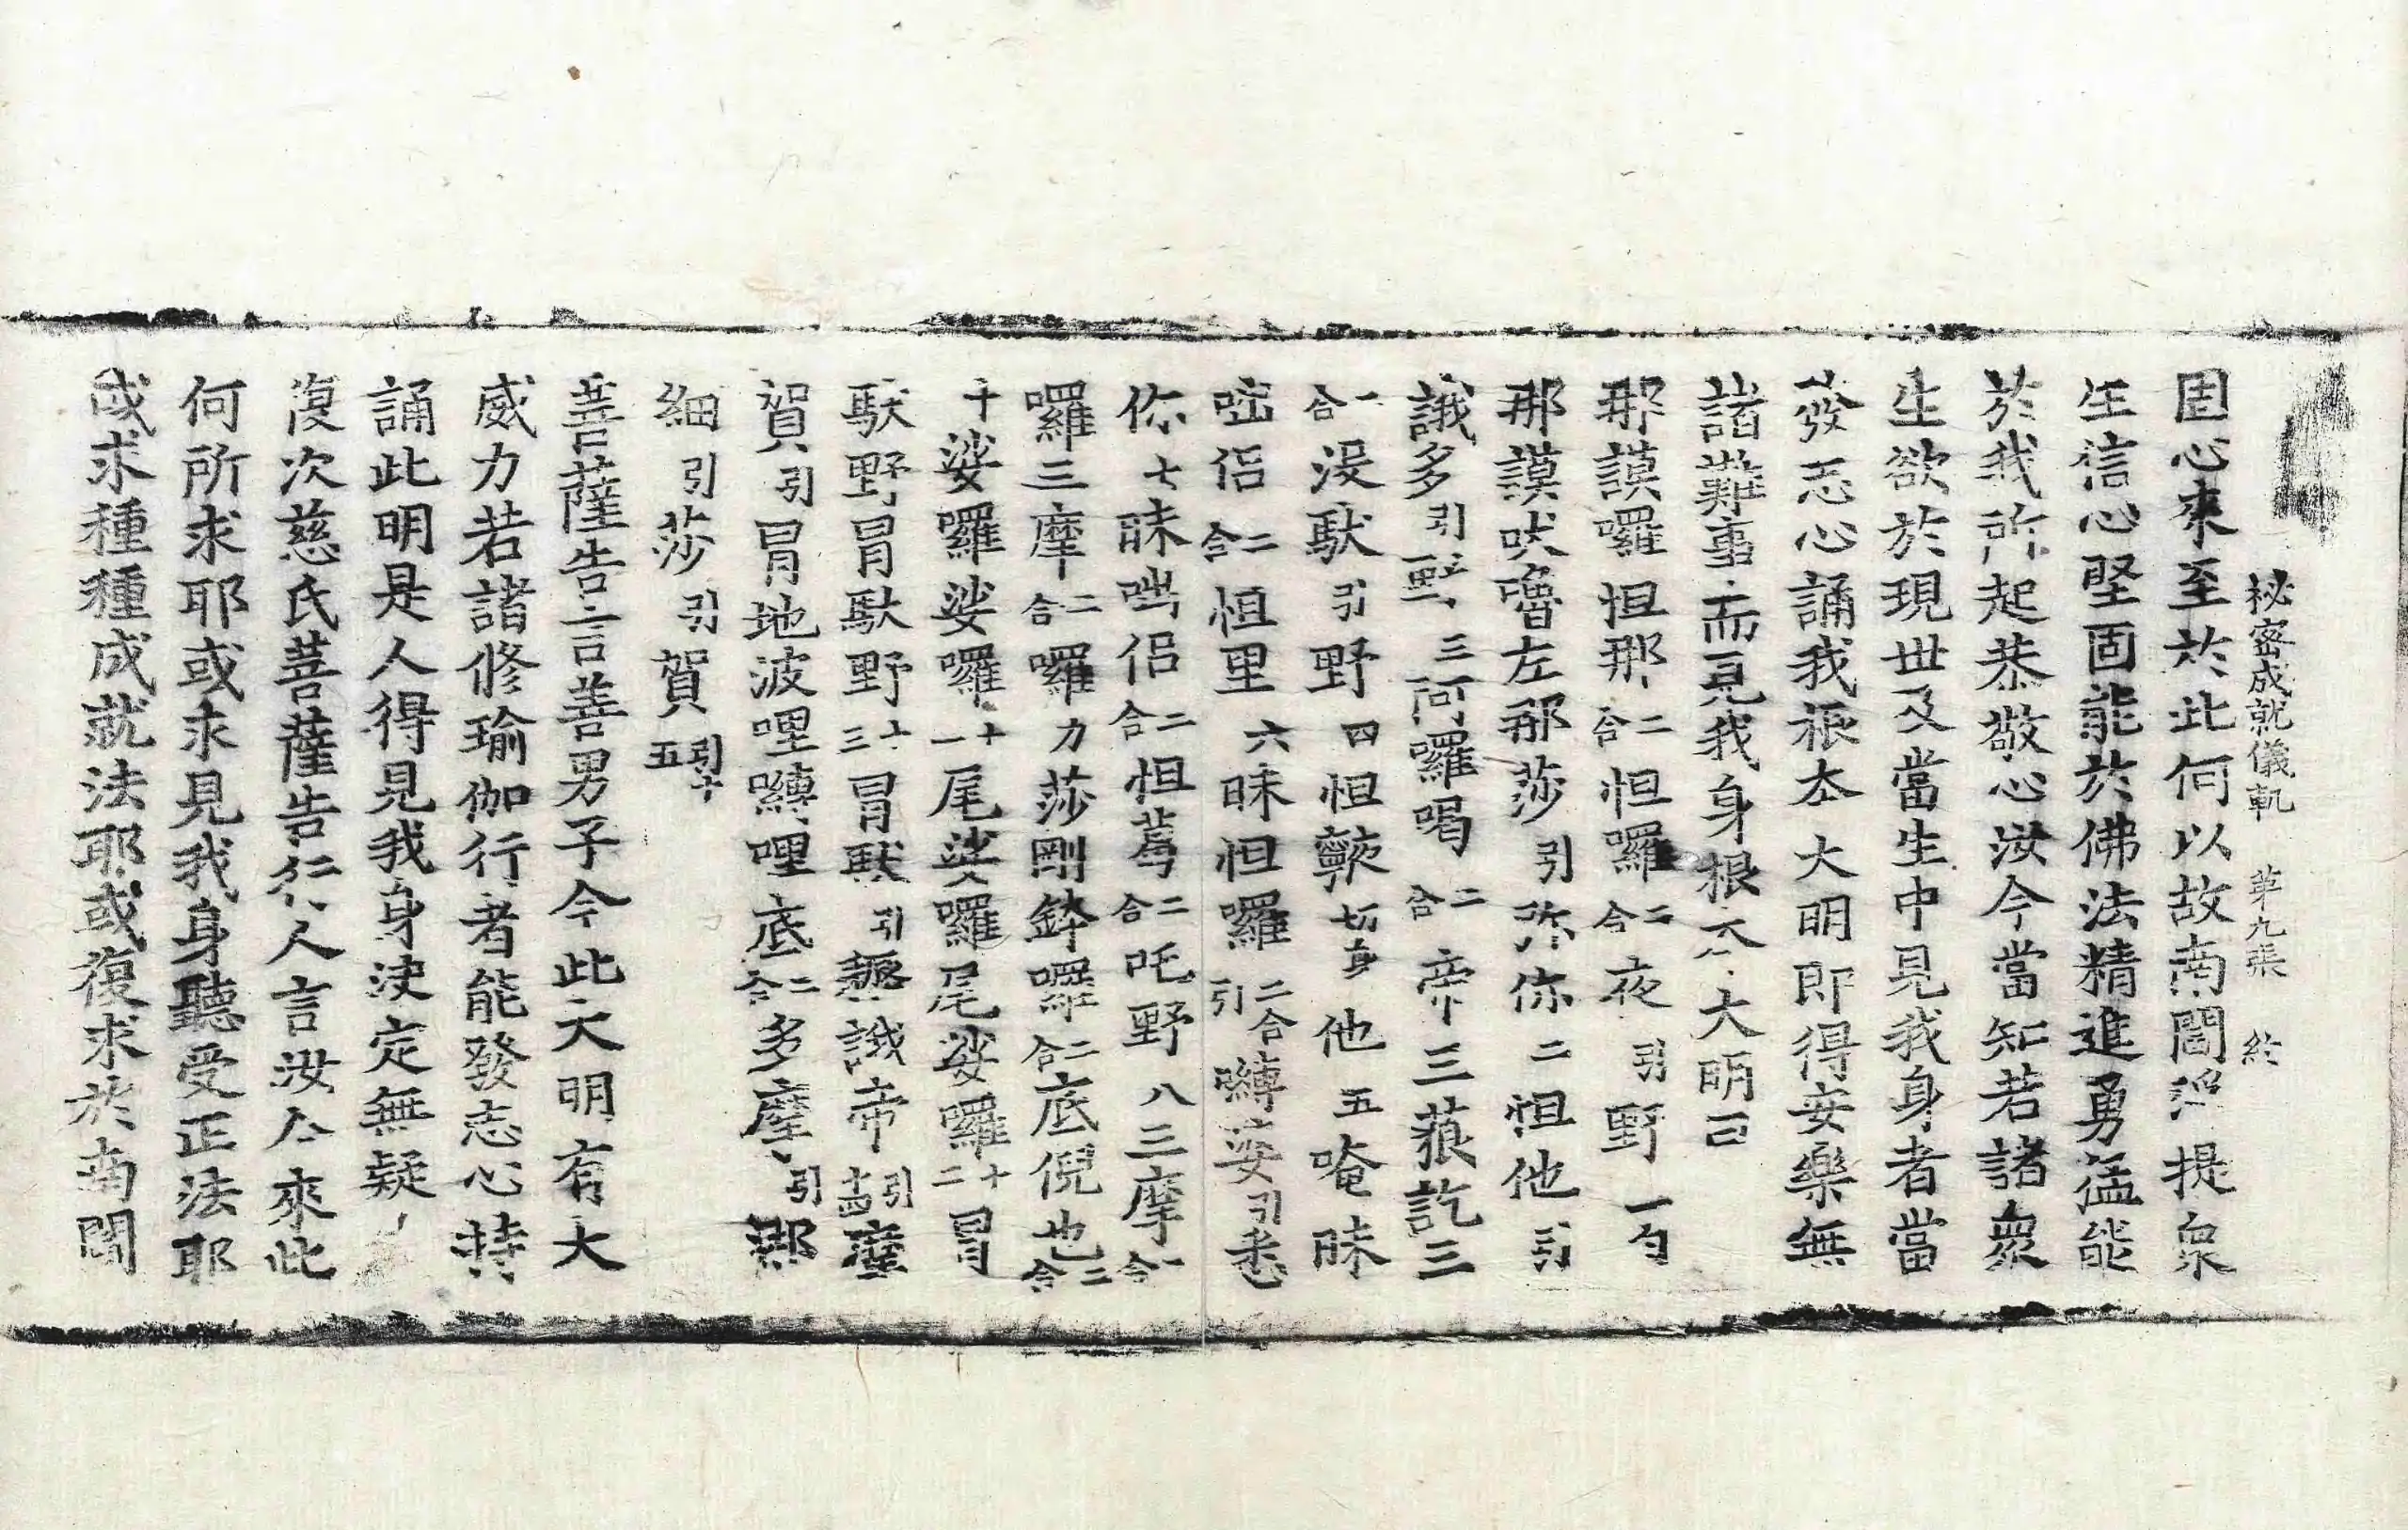 秘密成就儀軌　第九張　終
固心來至於此何以故南閻浮提衆
生信心堅固能於佛法精進勇猛能
於我所起恭敬心汝今當知若諸衆
生欲於現世及當生中見我身者當
發志心誦我根本大明即得安樂無
諸難事而見我身根本大明曰
那謨囉怛那二合怛囉二合夜引野一勺
那謨吠嚕左那莎引弥你二怛他引
誐多引野三阿囉喝二合帝三藐訖三
一合沒馱引野四怛𩕳切身他五唵昧
咥侶二合怛里六昧怛囉二合引嚩娑引悉
你七昧咄侶二合怛蕚二合吒野八三摩一合
囉三摩二合囉力莎剛鉢囉二合底倪也二合
十娑囉娑囉十一尾娑囉尾娑囉十二冒
馱野冒馱野十三冒馱引𧽒誐帝引十四摩
賀引冒地波哩嚩哩底二合多摩引那
細引莎引賀引十五
菩薩告言善男子今此大明有大
威力若諸修瑜伽行者能發志心持
誦此明是人得見我身決定無疑
復次慈氏菩薩告仁人言汝今來此
何所求耶或求見我身聽受正法耶
或求種種成就法耶或復求於南閻